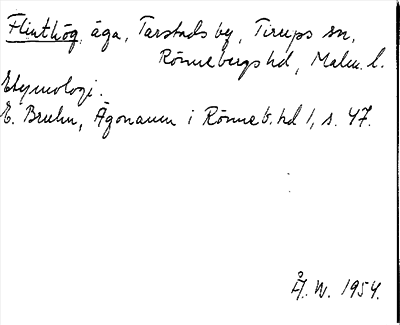 Flinthög, äga, Tarstads by, Tirups sn,
Rönnebergs hd, Malm. l.
Etymologi.
E. Bruhn, Ägonamn i Rönneb. hd 1, s. 47.
Å. W. 1954.